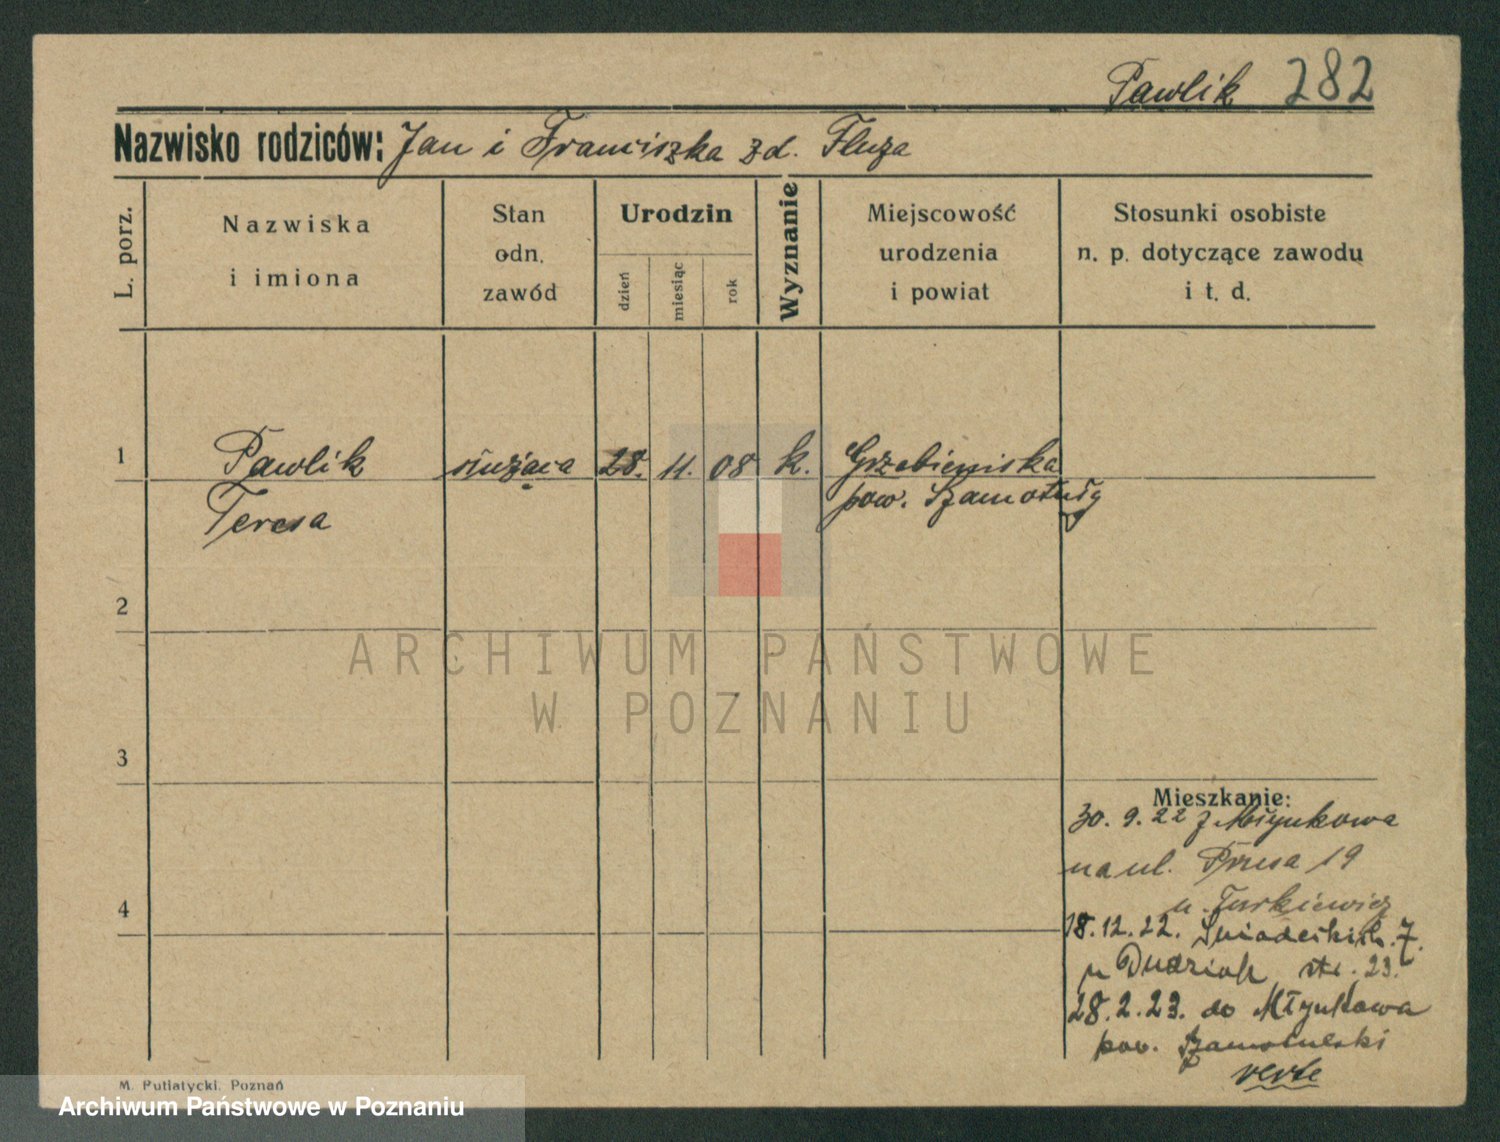 Pawlik 282
Nazwisko rodziców: Jan i Franciszka zd. Fluza
L. porz.
Nazwiska
i imiona
Stan
odn.
zawód
Urodzin
dzień
miesiąc
rok
Wyznanie
Miejscowość
urodzenia
i powiat
Stosunki osobiste
n. p. dotyczące zawodu
i t. d.
1 Pawlik służąca 28. 11. 08 k. Grzebienisko
Teresa pow. Szamotuły
2
3
4
Mieszkanie:
30. 9. 22 z Młynkowa
na ul. Prusa 19
u Turkiewicz
18. 12. 22. Śniadeckich. 7.
u Dudziak str. 23.
28. 2. 23. do Młynkowa
pow. Szamotulski
verte
M. Putiatycki, Poznań
ARCHIWUM PAŃSTWOWE
W POZNANIU
Archiwum Państwowe w Poznaniu